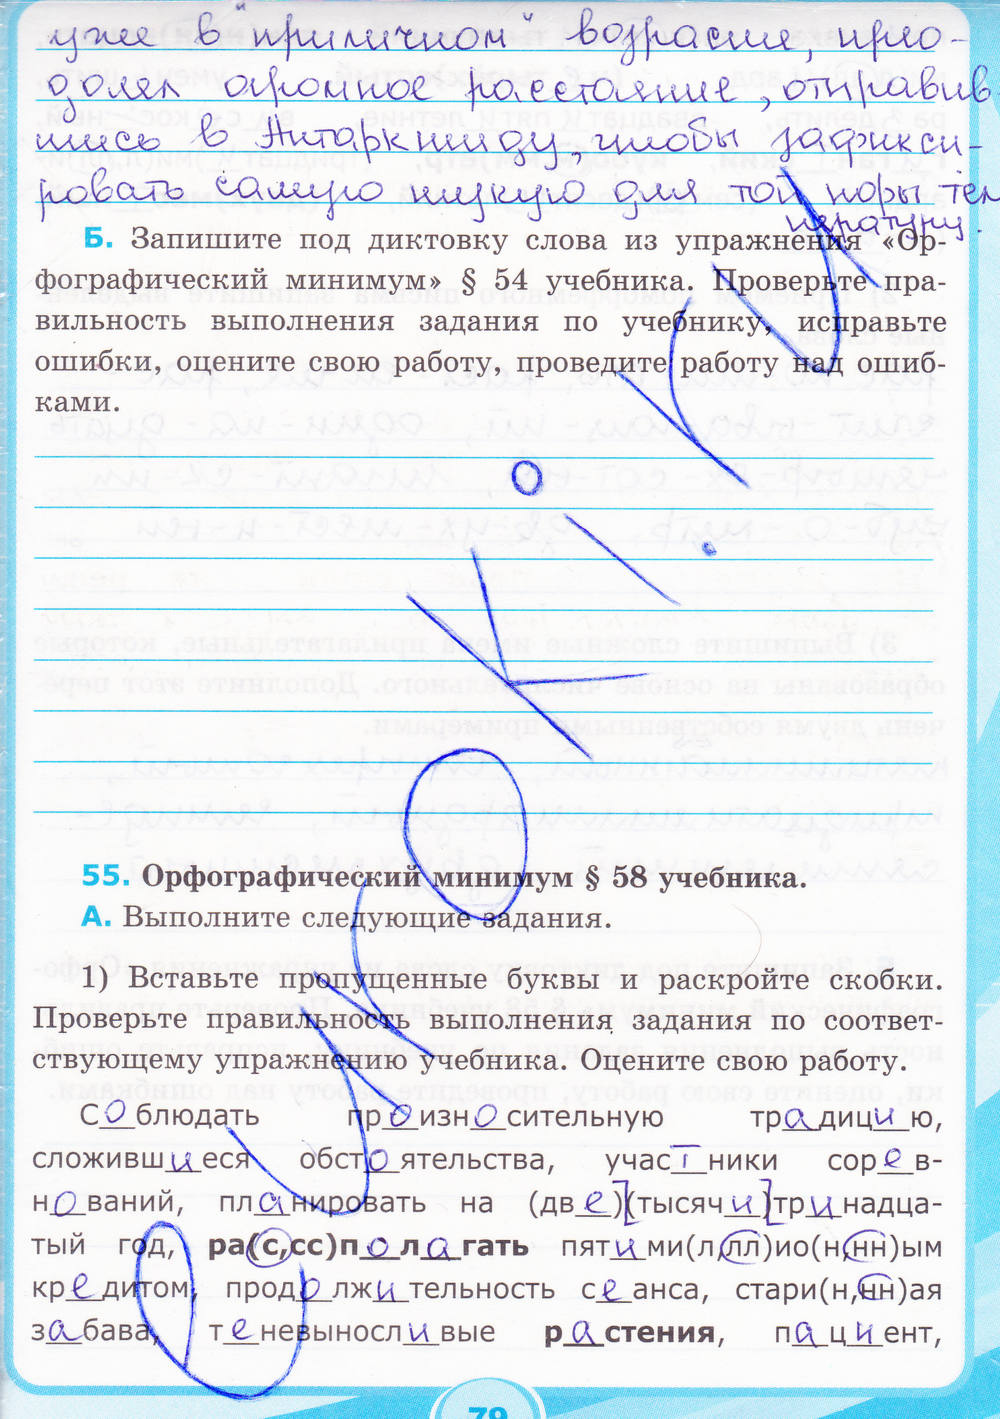 уже в "приличном" возрасте, прео-
долел огромное расстояние, отправив-
шись в Антарктиду, чтобы зафикси-
ровать самую низкую для той поры тем
пературу.
Б. Запишите под диктовку слова из упражнения «Ор-
фографический минимум» § 54 учебника. Проверьте пра-
вильность выполнения задания по учебнику, исправьте
ошибки, оцените свою работу, проведите работу над ошиб-
ками.
55. Орфографический минимум § 58 учебника.
А. Выполните следующие задания.
1) Вставьте пропущенные буквы и раскройте скобки.
Проверьте правильность выполнения задания по соответ-
ствующему упражнению учебника. Оцените свою работу.
Соблюдать произносительную традицию,
сложившиеся обстоятельства, участники сорев-
нований, планировать на (две)(тысячи)тринадца-
тый год, ра(с,сс)полагать пятими(л,лл)ио(н,нн)ым
кредитом, продолжительность сеанса, стари(н,нн)ая
забава, теневыносливые растения, пациент,
79